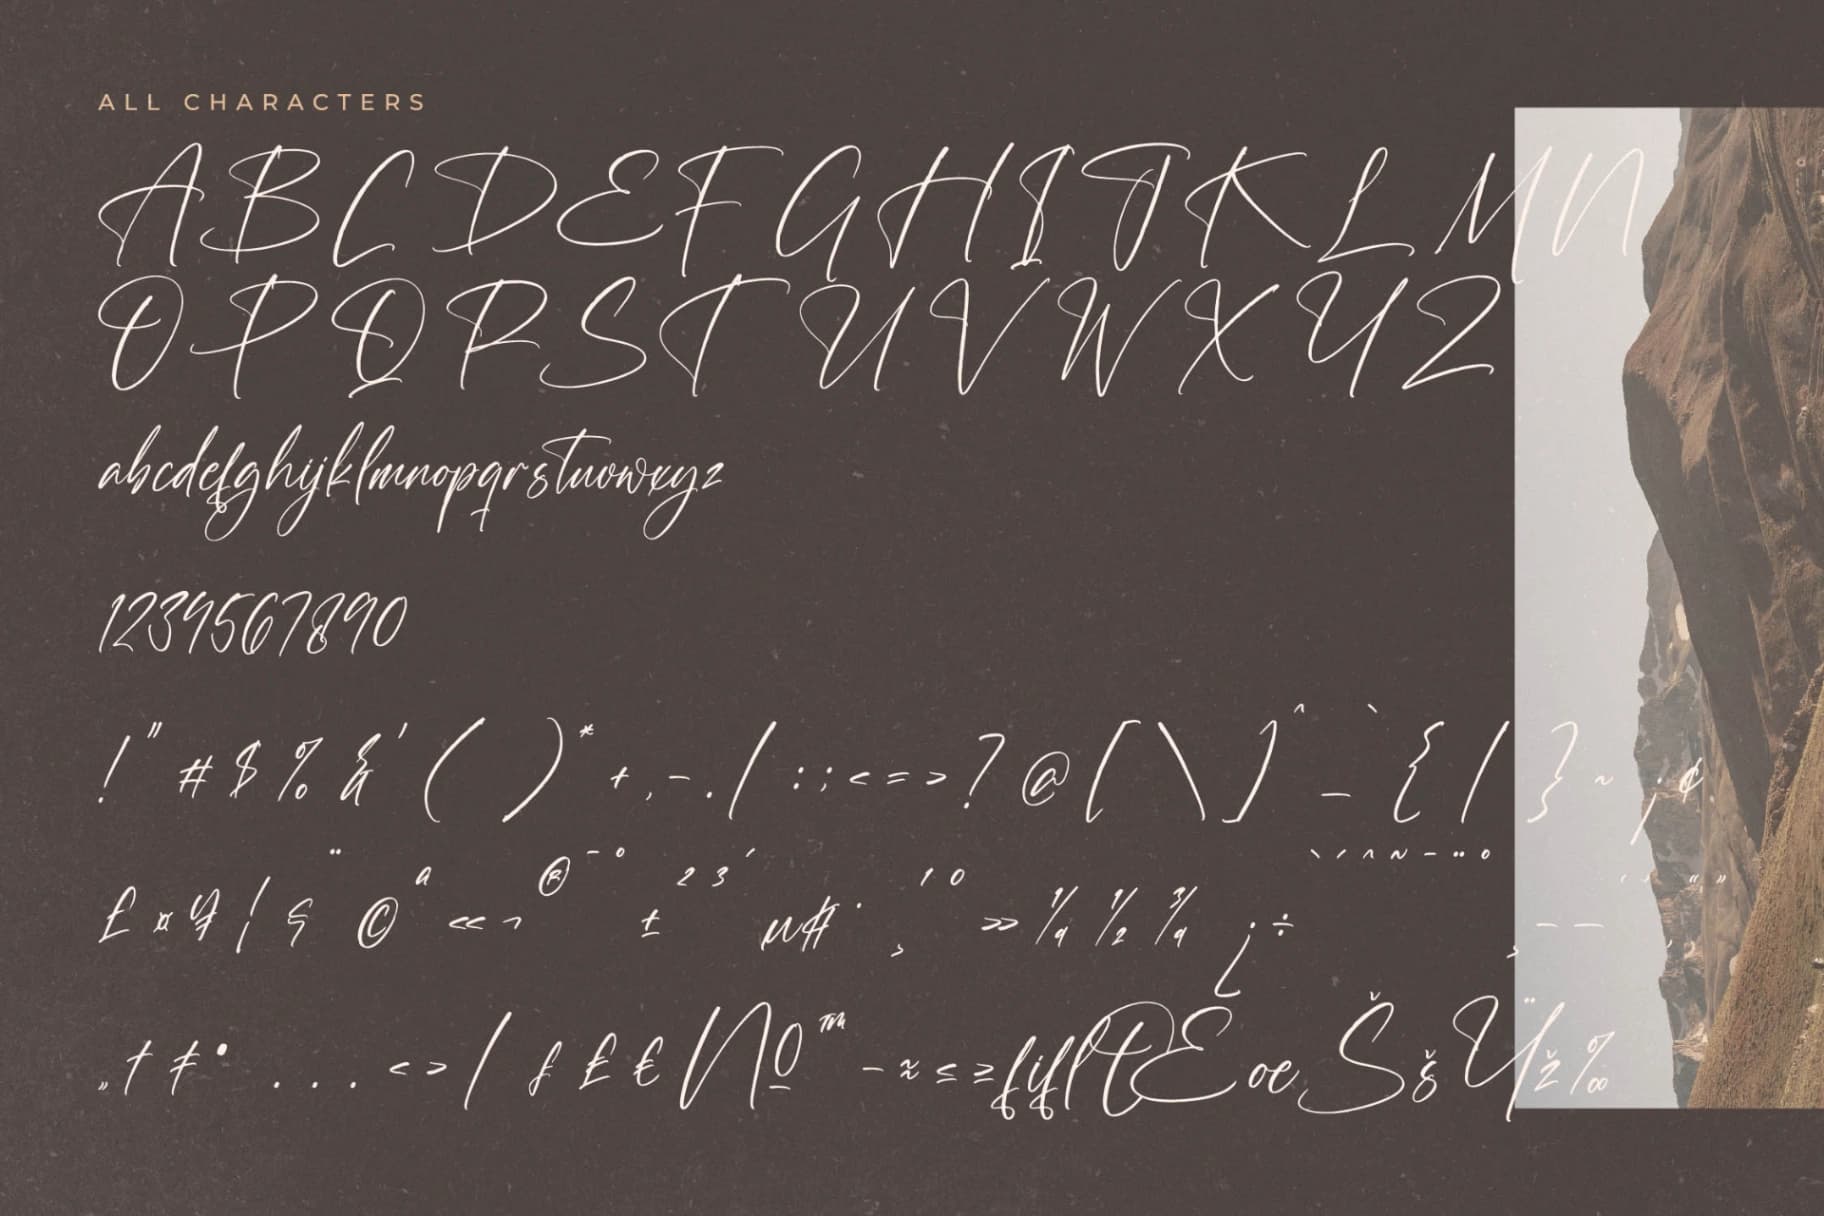 ALL CHARACTERS
ABCDEFGHIJKLMN
OPQRSTUVWXYZ
abcdefghijklmnopqrstuvwxyz
1234567890
! " # $ % & ' ( ) * + , - . / : ; < = > ? @ [ \ ] ^ _ ` { | } ~ ¡ ¢
£ ¤ ¥ ¦ § ¨ © ª « ¬ ® ¯ ° ± ² ³ ´ µ ¶ · ¸ ¹ º » ¼ ½ ¾ ¿ ÷ – — ‘ ’ ‚ “ ”
„ † ‡ • . . . ‹ › ⁄ ƒ ₤ € № ™ − ≈ ≤ ≥ fi fl Œ œ Š š Ÿ ž ‰